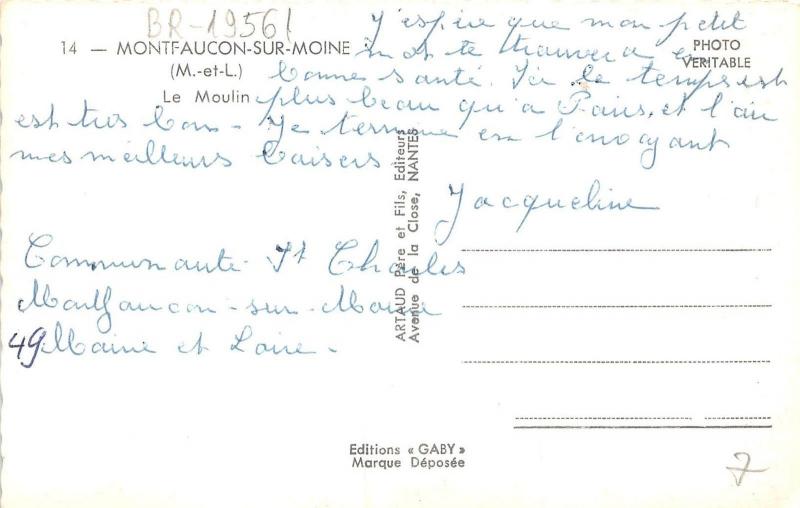 BR-19561
14 — MONTFAUCON-SUR-MOINE
(M.-et-L.)
Le Moulin
PHOTO
VERITABLE
J'espère que mon petit
mot te trouvera en
bonne santé. Ici le temps est
plus beau qu'a Paris, et l'air
est très bon - Je termine en t'envoyant
mes meilleurs baisers.
Jacqueline
Communauté St Charles
Montfaucon-sur-Moine
49 Maine et Loire -
ARTAUD Père et Fils, Editeurs
Avenue de la Close, NANTES
Editions « GABY »
Marque Déposée
7